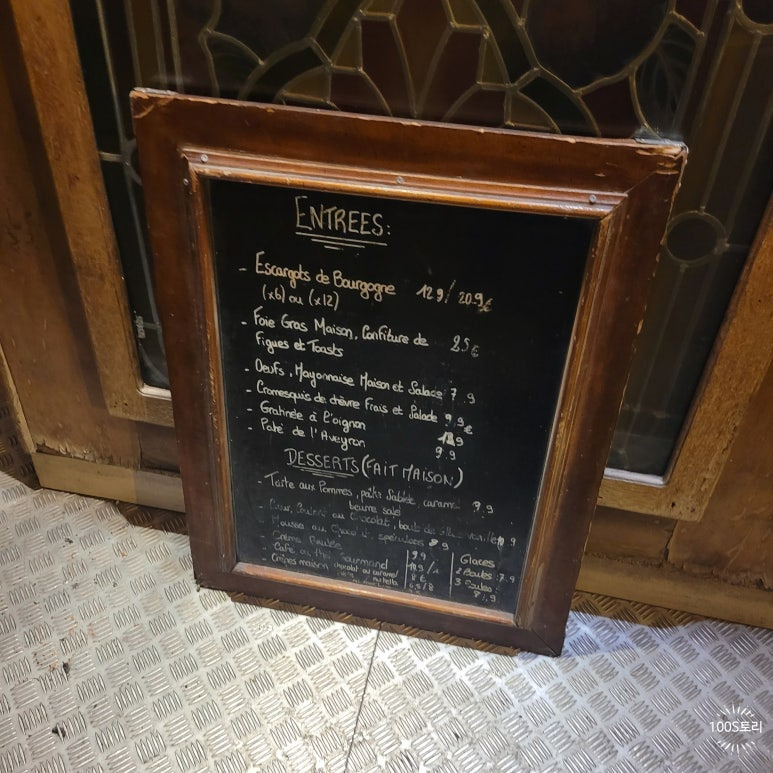 ENTREES:
- Escargots de Bourgogne 12.9/20.9€
(x6) ou (x12)
- Foie Gras Maison, Confiture de 25€
Figues et Toasts
- Oeufs, Mayonnaise Maison et Salade 7.9
- Cromesquis de chèvre Frais et Salade 9.9€
- Gratinée à l'oignon 9
- Paté de l'Aveyron 9.9
DESSERTS (FAIT MAISON)
- Tarte aux Pommes, pâte Sablée, caramel 9.9
beurre salé
- Coeur Coulant au Chocolat, boule de vanille 9
- Mousse au Chocolat, spéculoos 8.9
- Crème Brulée 9.9
- Café ou thé Gourmand
- Crêpes maison chocolat ou caramel 8€
nutella
Glaces
2 Boules: 7.9
3 Boules:
100S토리